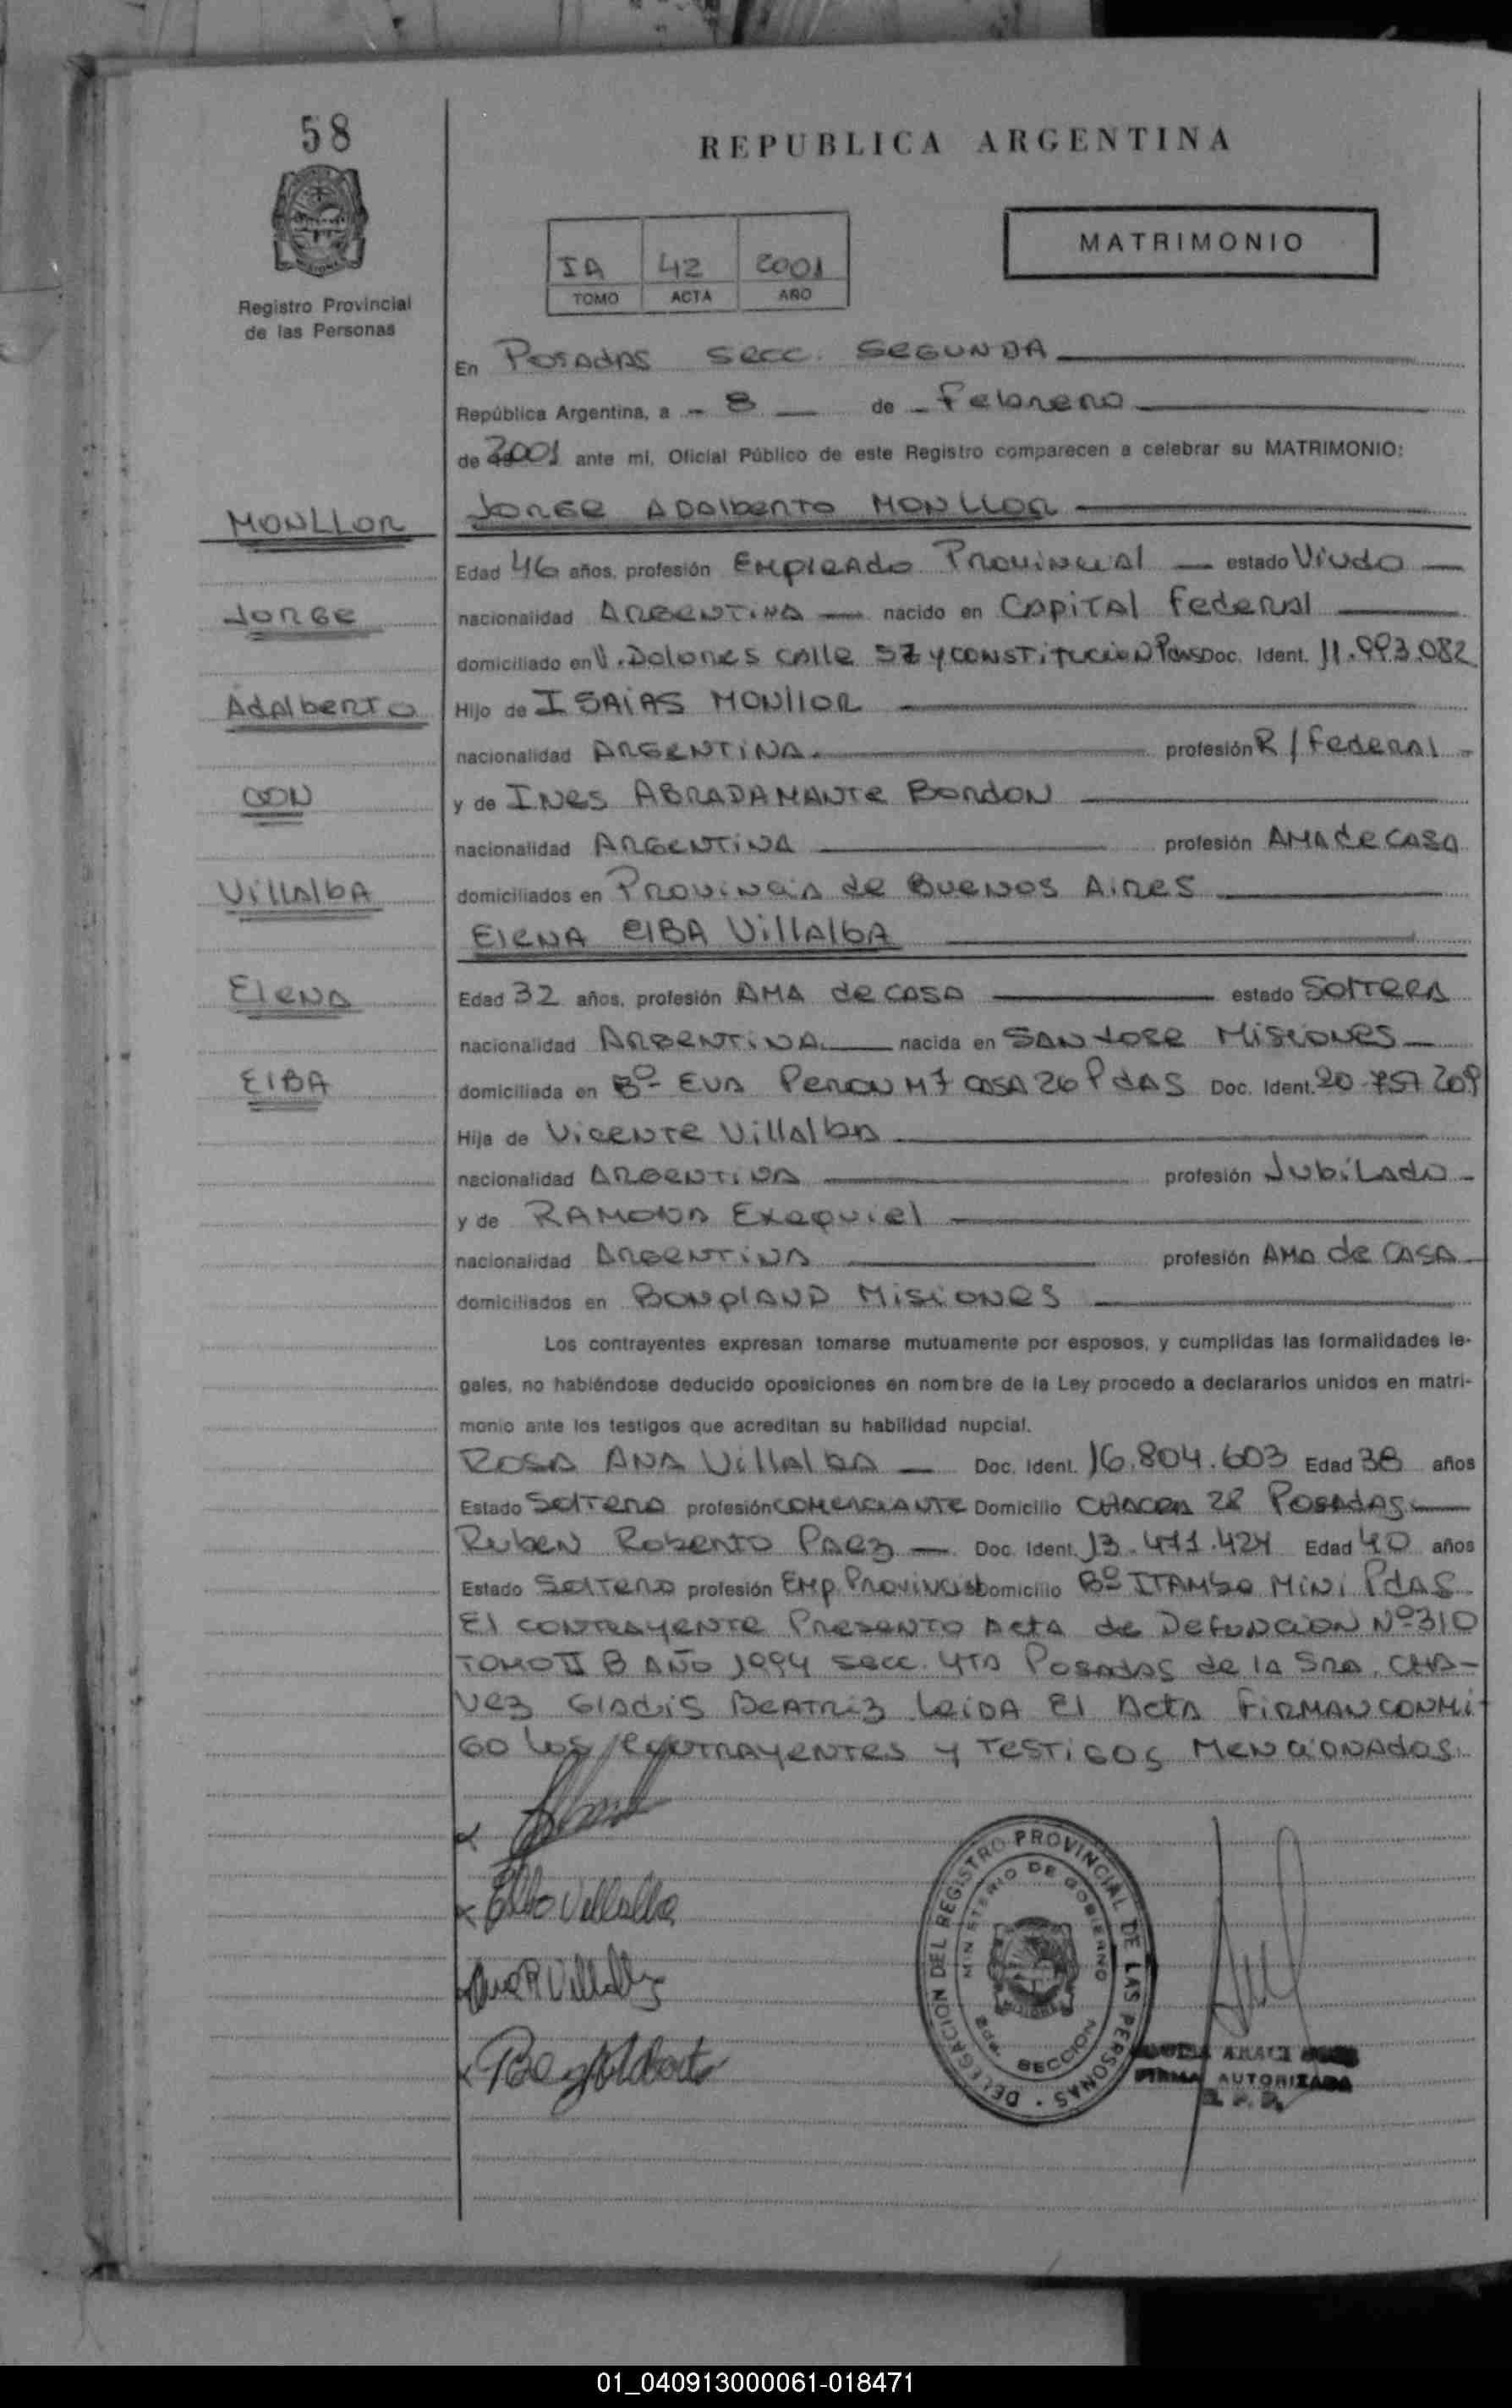 58
REPUBLICA ARGENTINA
MATRIMONIO
IA 42 2001
TOMO ACTA AÑO
Registro Provincial
de las Personas
En Posadas Secc. Segunda
República Argentina, a 8 de Febrero
de 2001 ante mi, Oficial Público de este Registro comparecen a celebrar su MATRIMONIO:
MONLLOR
JORGE ADALBERTO MONLLOR
Edad 46 años, profesión EMPLEADO PROVINCIAL estado VIUDO
JORGE
nacionalidad ARGENTINA nacido en CAPITAL FEDERAL
domiciliado en V. Dolores CALLE 57 y CONSTITUCION Pdas Doc. Ident. 11.993.082
ADALBERTO
Hijo de ISAIAS MONLLOR
nacionalidad ARGENTINA profesión R/FEDERAL
CON
y de INES ABRADAMANTE BORDON
nacionalidad ARGENTINA profesión AMA de CASA
VILLALBA
domiciliados en PROVINCIA de BUENOS AIRES
ELENA ELBA VILLALBA
ELENA
Edad 32 años, profesión AMA de CASA estado SOLTERA
nacionalidad ARGENTINA nacida en SAN JOSE MISIONES
ELBA
domiciliada en Bº EVA PERON M7 CASA 26 PDAS Doc. Ident. 20.757.209
Hija de VICENTE VILLALBA
nacionalidad ARGENTINA profesión JUBILADO
y de RAMONA EXEQUIEL
nacionalidad ARGENTINA profesión AMA de CASA
domiciliados en BONPLAND MISIONES
Los contrayentes expresan tomarse mutuamente por esposos, y cumplidas las formalidades le-
gales, no habiéndose deducido oposiciones en nombre de la Ley procedo a declararlos unidos en matri-
monio ante los testigos que acreditan su habilidad nupcial.
ROSA ANA VILLALBA Doc. Ident. 16.804.603 Edad 38 años
Estado SOLTERA profesión COMERCIANTE Domicilio CHACRA 28 POSADAS
RUBEN ROBERTO PAEZ Doc. Ident. 13.471.424 Edad 40 años
Estado SOLTERO profesión EMP. PROVINCIAL Domicilio Bº ITAMBE MINI PDAS
El CONTRAYENTE PRESENTO ACTA de DEFUNCION Nº 310
TOMO II B AÑO 1994 SECC. 4TA POSADAS de la SRA. CHA-
VEZ GLADIS BEATRIZ LEIDA El ACTA FIRMAN CONMI-
GO los CONTRAYENTES Y TESTIGOS MENCIONADOS.
Elba Villalba
Ana R Villalba
DELEGACION DEL REGISTRO PROVINCIAL DE LAS PERSONAS
MINISTERIO DE GOBIERNO
2da. SECCION
FIRMA AUTORIZADA
01_040913000061-018471